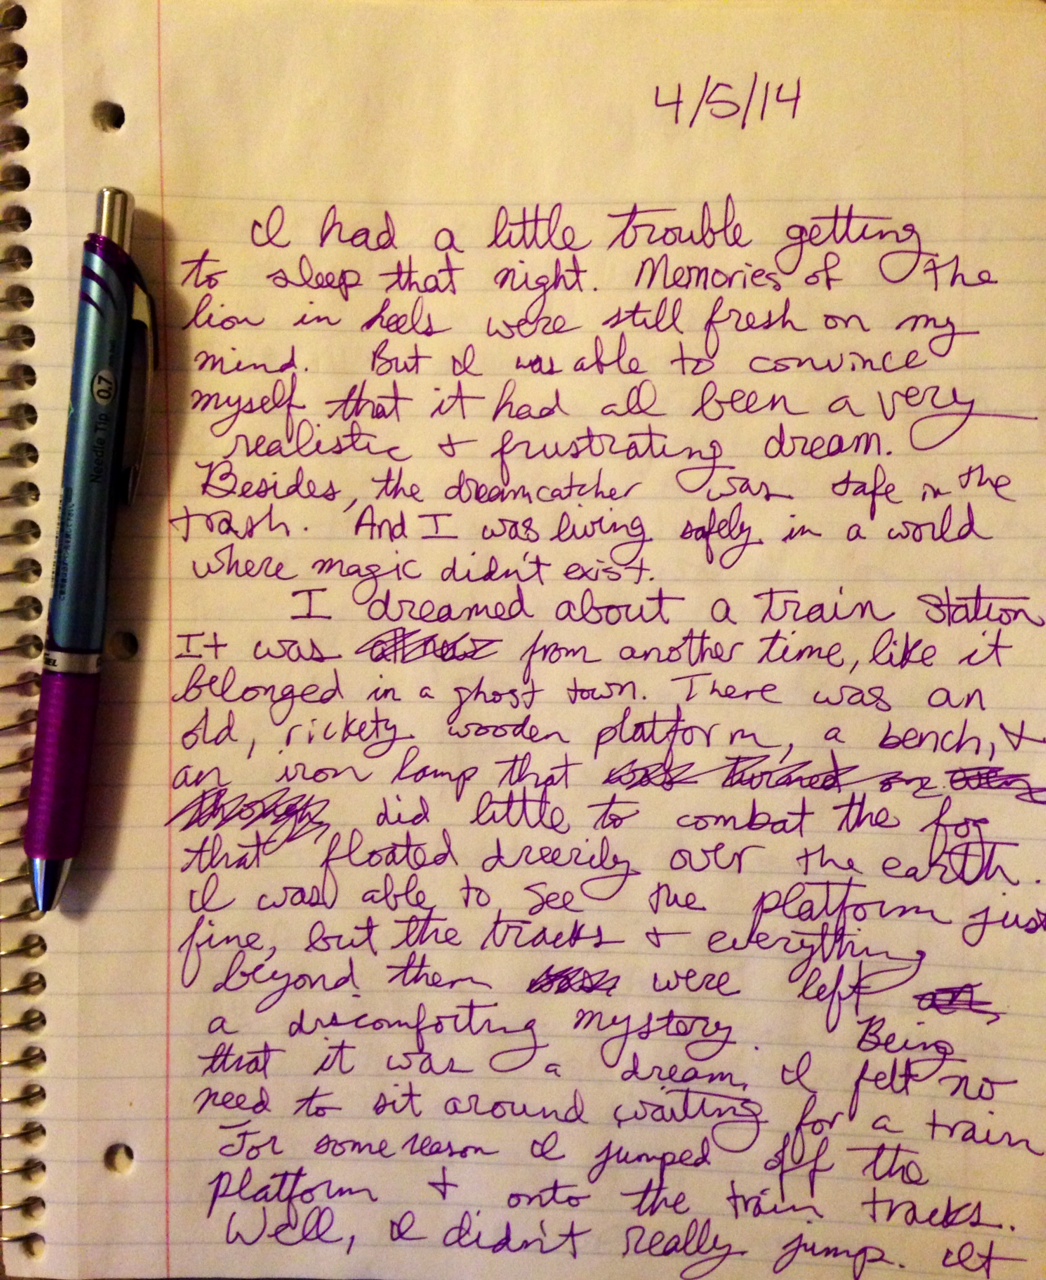 4/5/14
I had a little trouble getting
to sleep that night. Memories of the
lion in heels were still fresh on my
mind. But I was able to convince
myself that it had all been a very
realistic & frustrating dream.
Besides, the dreamcatcher was safe in the
trash. And I was living safely in a world
where magic didn't exist.
I dreamed about a train station
It was from another time, like it
belonged in a ghost town. There was an
old, rickety wooden platform, a bench, &
an iron lamp that was turned on even
though did little to combat the fog
that floated dreerily over the earth.
I was able to see the platform just
fine, but the tracks & everything
beyond them were left
a discomforting mystery. Being
that it was a dream, I felt no
need to sit around waiting for a train
For some reason I jumped off the
platform & onto the train tracks.
Well, I didn't really jump. It
Needle Tip 0.7